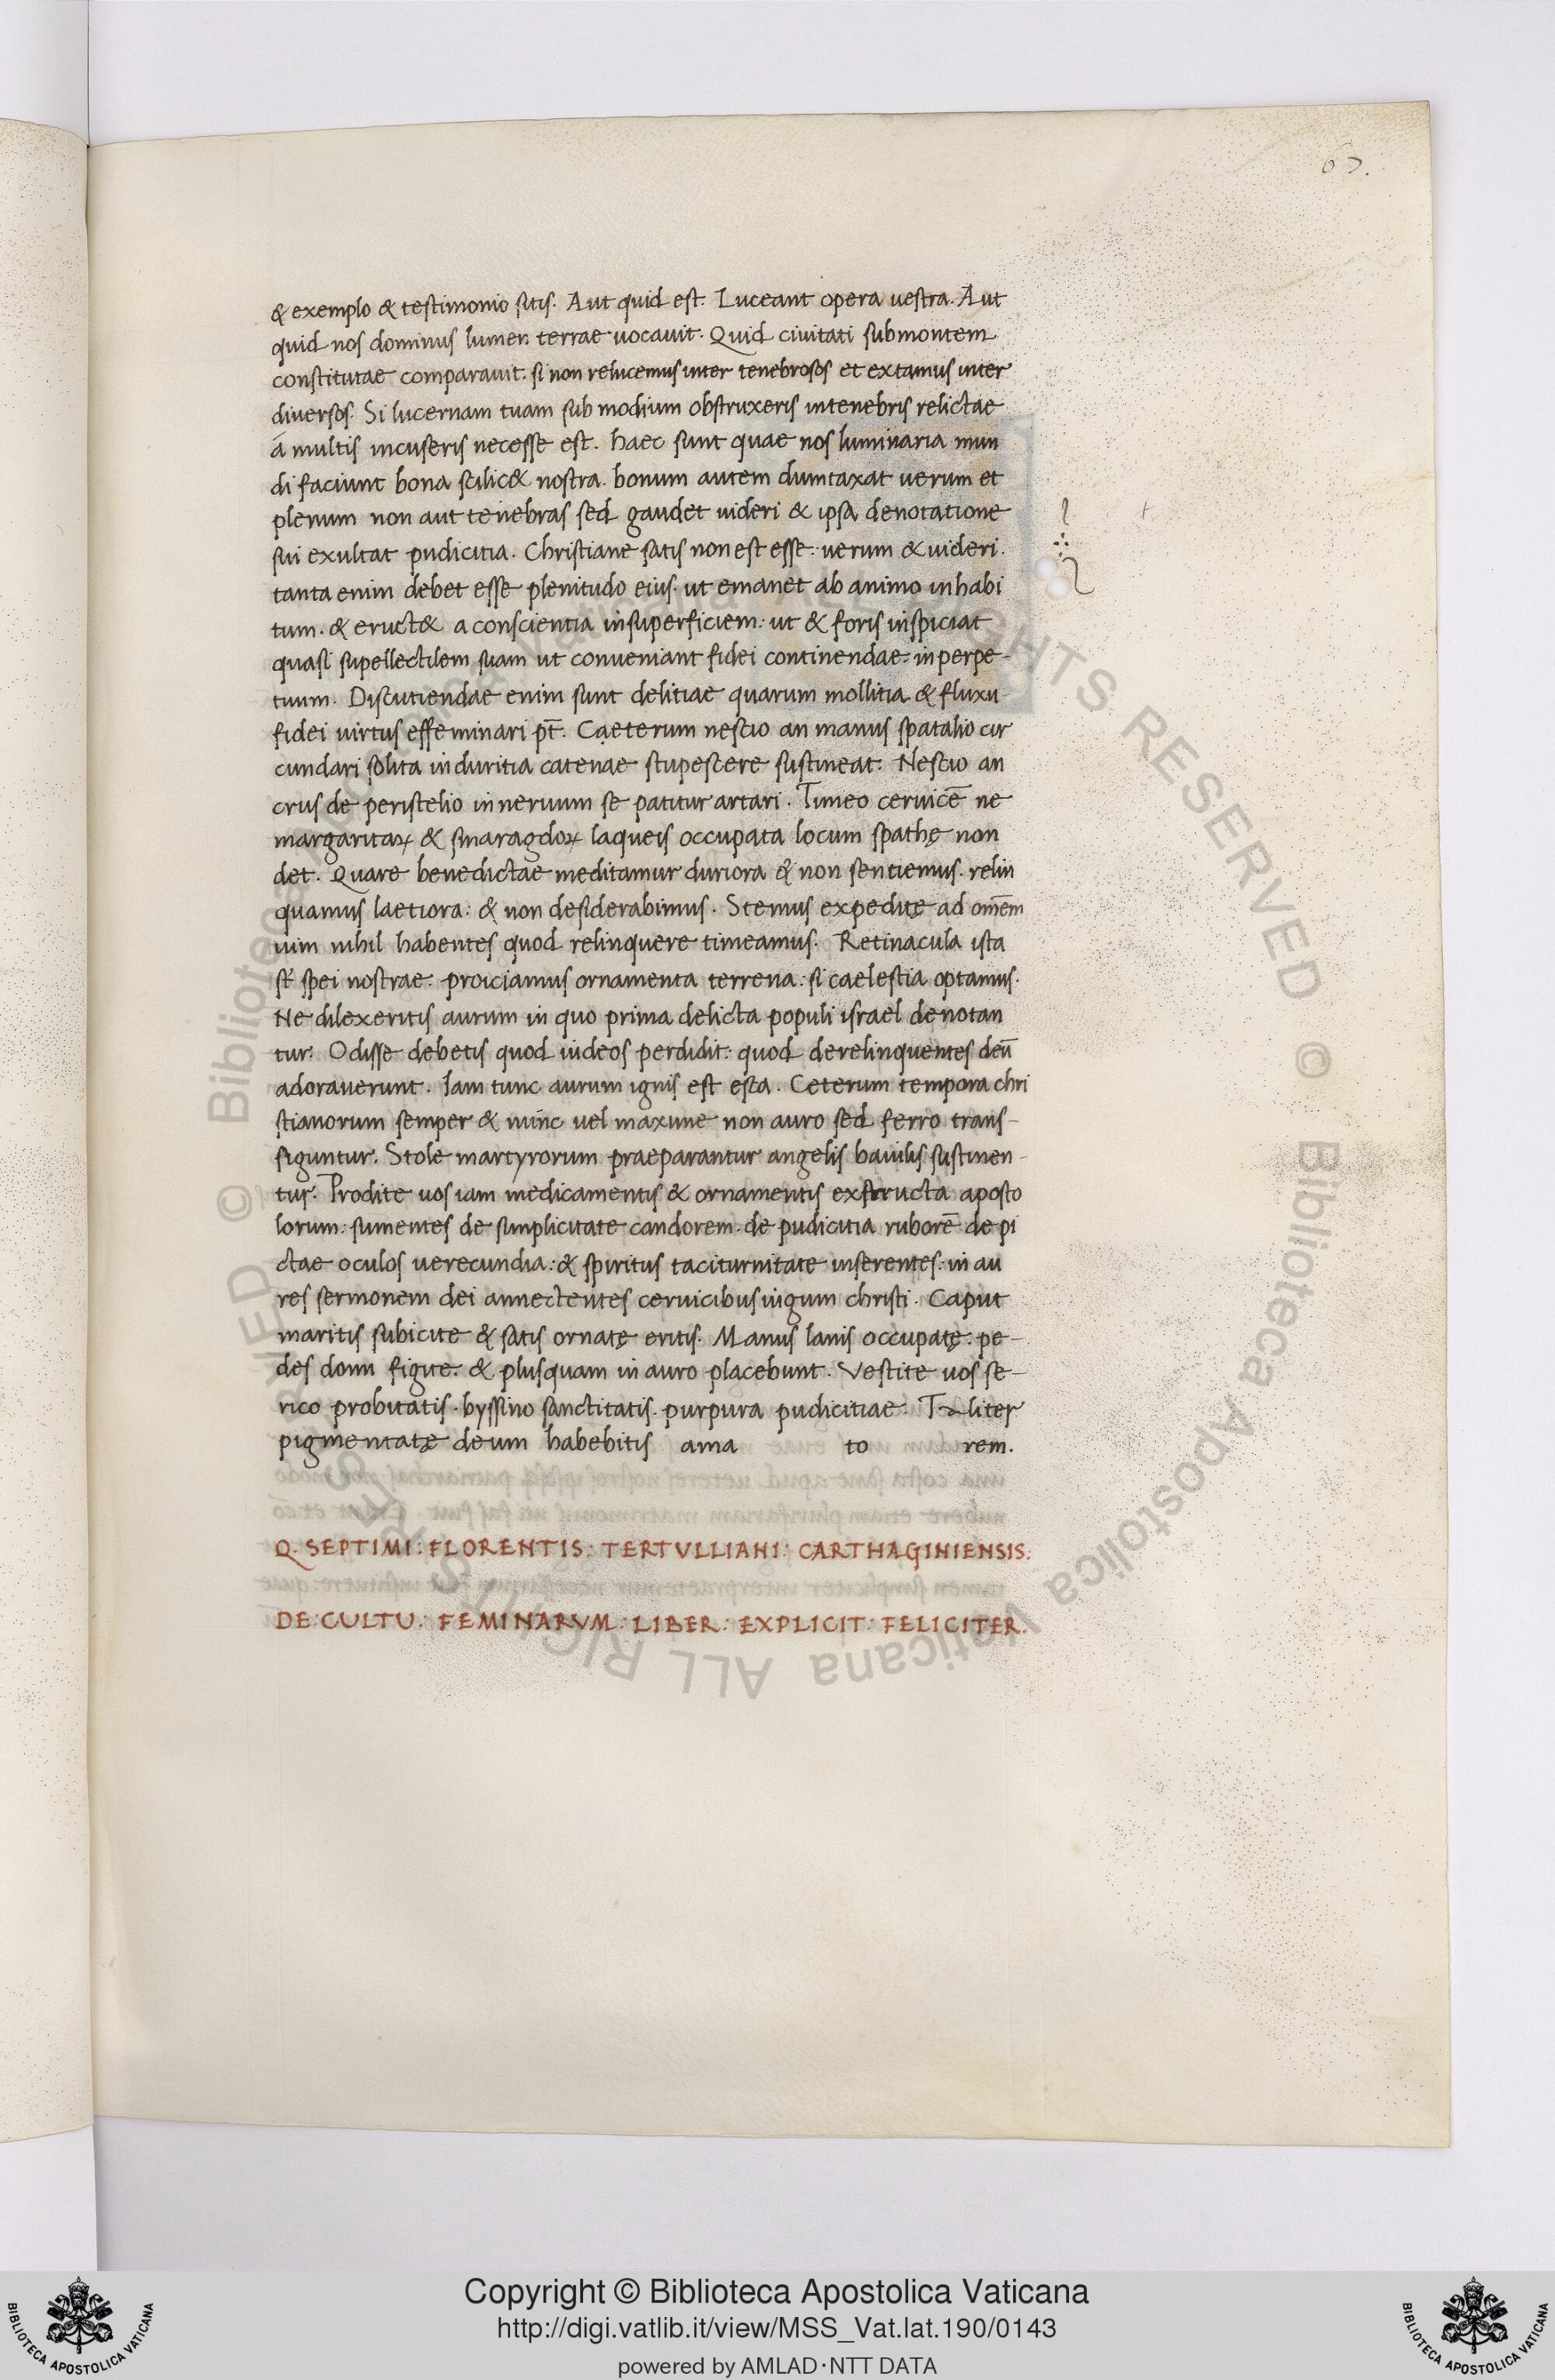 67.
& exemplo & testimonio sitis. Aut quid est. Luceant opera uestra. Aut
quid nos dominus lumen terrae uocauit. Quid ciuitati submontem
constitutae comparauit. si non relucemus inter tenebrosos et extamus inter
diuersos. Si lucernam tuam sub modium obstruxeris intenebris relictae
á multis incuseris necesse est. haec sunt quae nos luminaria mun
di faciunt bona scilic& nostra. bonum autem dumtaxat uerum et
plenum non aut tenebras sed gaudet uideri & ipsa denotatione
sui exultat pudicitia. Christiane satis non est esse: uerum & uideri.
tanta enim debet esse plenitudo eius. ut emanet ab animo inhabi
tum. & eruct& a conscientia insuperficiem: ut & foris inspiciat
quasi supellectilem suam ut conueniant fidei continendae: inperpe-
tuum. Discutiendae enim sunt delitiae quarum mollitia & fluxu
fidei uirtus effeminari pt̄. Caeterum nescio an manus spatalio cir
cundari solita induritia catenae stupescere sustineat. Nescio an
crus de peristelio innernum se patitur artari. Timeo ceruicē ne
margaritaꝝ & smaragdoꝝ laqueis occupata locum spathę non
det. Quare benedictae meditamur duriora & non sentiemus. relin
quamus laetiora: & non desiderabimus. Stemus expeditę ad om̄em
uim nihil habentes quod relinquere timeamus. Retinacula ista
st̄ spei nostrae. proiciamus ornamenta terrena: si caelestia optamus.
Ne dilexeritis aurum in quo prima delicta populi israel denotan
tur. Odisse debetis quod iudeos perdidit: quod derelinquentes deū
adorauerunt. Iam tunc aurum ignis est esca. Ceterum tempora chri
stianorum semper & nunc uel maxime non auro sed ferro trans-
figuntur. Stole martyrorum praeparantur angelis baiulis sustinen-
tur. Prodite uos iam medicamentis & ornamentis exstructa aposto
lorum: sumentes de simplicitate candorem. de pudicitia ruborē de pi
ctae oculos uerecundia: & spiritus taciturnitate inserentes: in au
res sermonem dei annectentes ceruicibus iugum christi. Caput
maritis subicite & satis ornatę eritis. Manus lanis occupatę. pe-
des domi figite. & plusquam in auro placebunt. Vestite uos se-
rico probitatis. byssino sanctitatis. purpura pudicitiae. Taliter
pigmentatę deum habebitis ama to rem.
Q. SEPTIMI: FLORENTIS: TERTVLLIANI: CARTHAGINIENSIS:
DE: CULTU: FEMINARVM: LIBER: EXPLICIT: FELICITER.
© Biblioteca Apostolica Vaticana ALL RIGHTS RESERVED
Copyright © Biblioteca Apostolica Vaticana
http://digi.vatlib.it/view/MSS_Vat.lat.190/0143
powered by AMLAD·NTT DATA
BIBLIOTECA APOSTOLICA VATICANA
BIBLIOTECA APOSTOLICA VATICANA